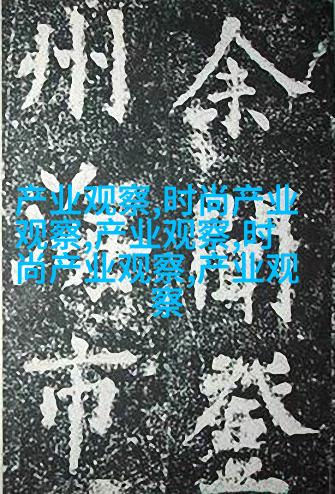 余聞登
州海市
产业观察,时尚产业
观察,产业观察,时
尚产业观察,产业观
察